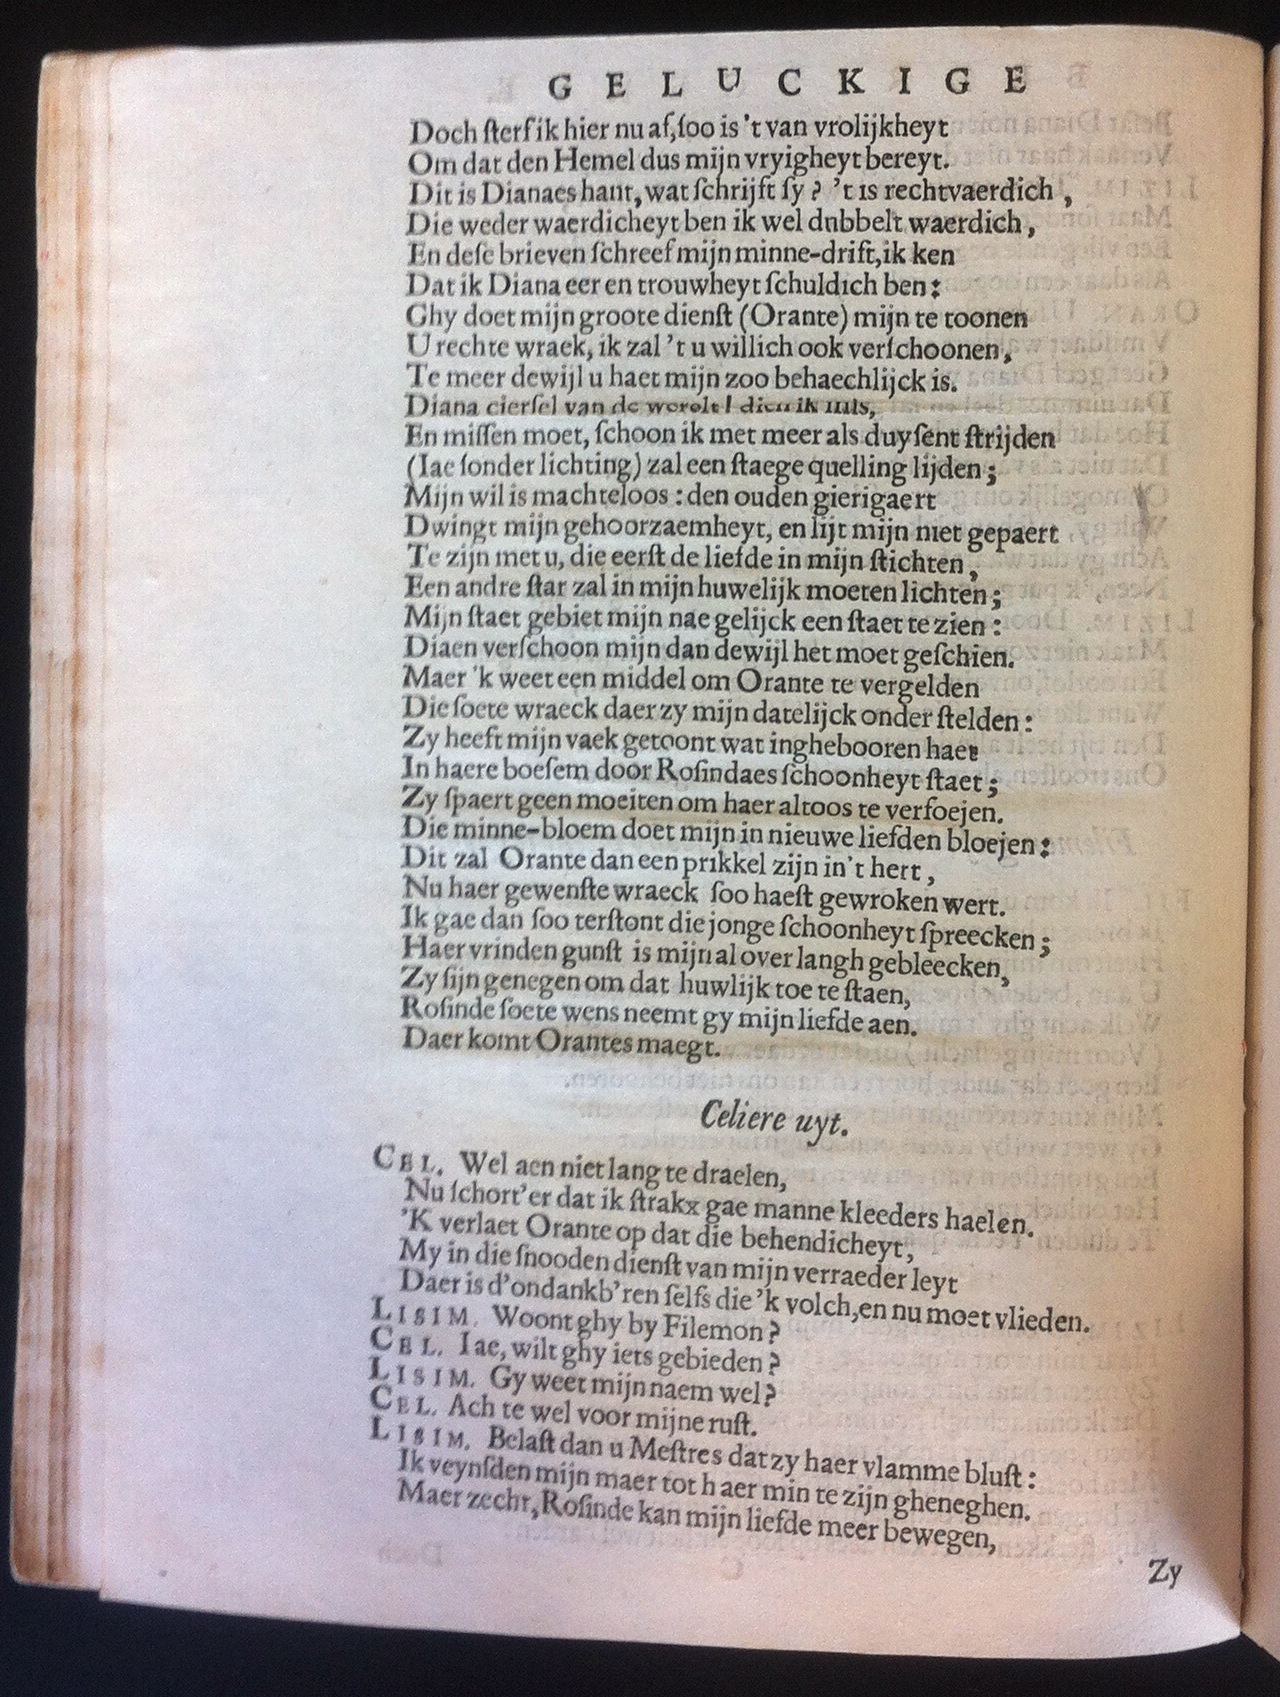 GELUCKIGE
Doch ſterf ik hier nu af, ſoo is 't van vrolijkheyt
Om dat den Hemel dus mijn vryigheyt bereyt.
Dit is Dianaes hant, wat ſchrijft ſy? 't is rechtvaerdich,
Die weder waerdicheyt ben ik wel dubbelt waerdich,
En deſe brieven ſchreef mijn minne-drift, ik ken
Dat ik Diana eer en trouwheyt ſchuldich ben:
Ghy doet mijn groote dienſt (Orante) mijn te toonen
U rechte wraek, ik zal 't u willich ook verſchoonen,
Te meer dewijl u haet mijn zoo behaechlijck is.
Diana cierſel van de werelt! dien ik mis,
En miſſen moet, ſchoon ik met meer als duyſent ſtrijden
(Iae ſonder lichting) zal een ſtaege quelling lijden;
Mijn wil is machteloos: den ouden gierigaert
Dwingt mijn gehoorzaemheyt, en lijt mijn niet gepaert
Te zijn met u, die eerſt de liefde in mijn ſtichten,
Een andre ſtar zal in mijn huwelijk moeten lichten;
Mijn ſtaet gebiet mijn nae gelijck een ſtaet te zien:
Diaen verſchoon mijn dan dewijl het moet geſchien.
Maer 'k weet een middel om Orante te vergelden
Die ſoete wraeck daer zy mijn datelijck onder ſtelden:
Zy heeft mijn vaek getoont wat inghebooren haet
In haere boeſem door Roſindaes ſchoonheyt ſtaet;
Zy ſpaert geen moeiten om haer altoos te verfoejen.
Die minne-bloem doet mijn in nieuwe liefden bloejen:
Dit zal Orante dan een prikkel zijn in 't hert,
Nu haer gewenſte wraeck ſoo haeſt gewroken wert.
Ik gae dan ſoo terſtont die jonge ſchoonheyt ſpreecken;
Haer vrinden gunſt is mijn al over langh gebleecken,
Zy ſijn genegen om dat huwlijk toe te ſtaen,
Roſinde ſoete wens neemt gy mijn liefde aen.
Daer komt Orantes maegt.
Celiere uyt.
CEL. Wel aen niet lang te draelen,
Nu ſchort'er dat ik ſtrakx gae manne kleeders haelen.
'K verlaet Orante op dat die behendicheyt,
My in die ſnooden dienſt van mijn verraeder leyt
Daer is d'ondankb'ren ſelfs die 'k volch, en nu moet vlieden.
LISIM. Woont ghy by Filemon?
CEL. Iae, wilt ghy iets gebieden?
LISIM. Gy weet mijn naem wel?
CEL. Ach te wel voor mijne ruſt.
LISIM. Belaſt dan u Meſtres dat zy haer vlamme bluſt:
Ik veynſden mijn maer tot haer min te zijn gheneghen.
Maer zecht, Roſinde kan mijn liefde meer bewegen,
Zy